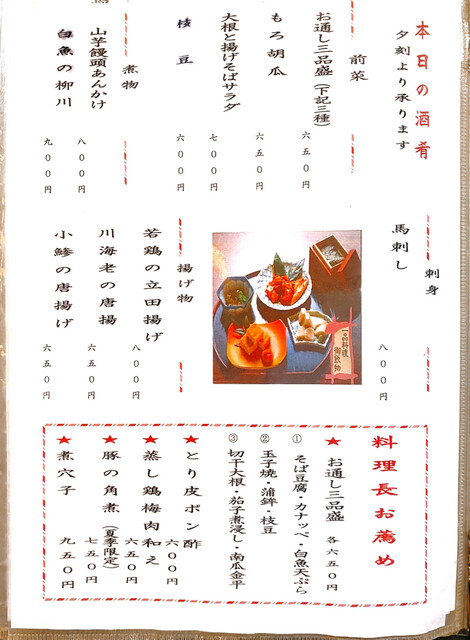 本日の酒肴
夕刻より承ります
前菜
お通し三品盛(下記三種)
六五〇円
もろ胡瓜
六五〇円
大根と揚げそばサラダ
七〇〇円
枝豆
六〇〇円
煮物
山芋饅頭あんかけ
八〇〇円
白魚の柳川
九〇〇円
刺身
馬刺し
八〇〇円
一品料理
御飲物
揚げ物
若鶏の立田揚げ
八〇〇円
川海老の唐揚
六五〇円
小鯵の唐揚げ
六五〇円
料理長お薦め
★お通し三品盛 各六五〇円
①そば豆腐・カナッペ・白魚天ぷら
②玉子焼・蒲鉾・枝豆
③切干大根・茄子煮浸し・南瓜金平
★とり皮ポン酢 六〇〇円
★蒸し鶏梅肉和え 六五〇円
★豚の角煮(夏季限定) 七五〇円
★煮穴子 九五〇円